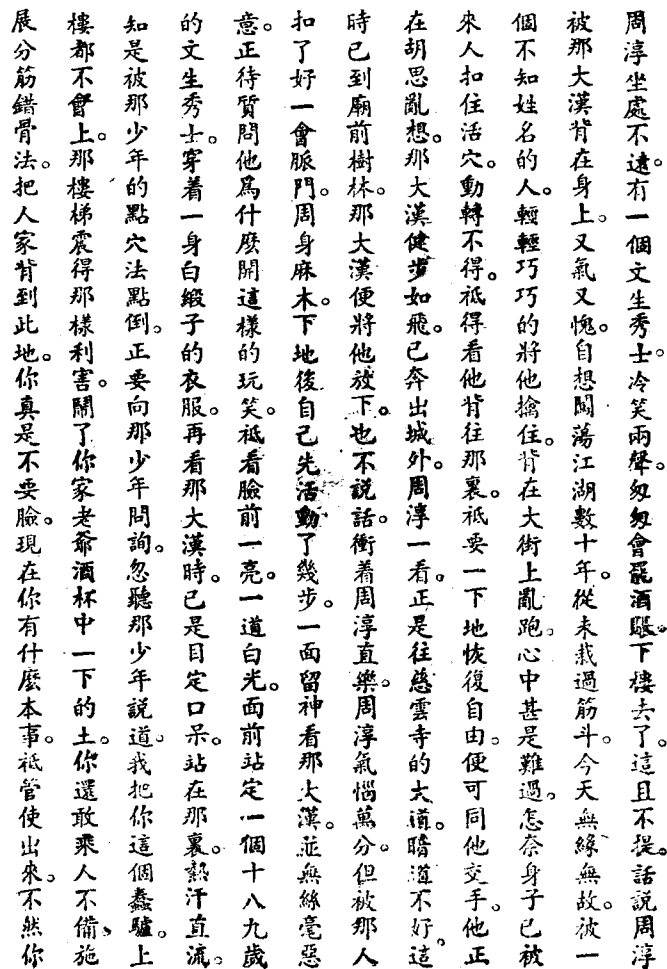 周淳坐處不遠。有一個文生秀士。冷笑兩聲。匆匆會罷酒賬。下樓去了。這且不提。話說周淳
被那大漢背在身上。又氣又愧。自想闖蕩江湖數十年。從未栽過筋斗。今天無緣無故。被一
個不知姓名的人。輕輕巧巧的將他擒住。背在大街上亂跑。心中甚是難過。怎奈身子已被
來人扣住活穴。動轉不得。祇得看他背往那裏。祇要一下地恢復自由。便可同他交手。他正
在胡思亂想。那大漢健步如飛。已奔出城外。周淳一看。正是往慈雲寺的大道。暗道不好。這
時已到廟前樹林。那大漢便將他放下。也不說話。衝着周淳直樂。周淳氣惱萬分。但被那人
扣了好一會脈門。周身麻木。下地後自己先活動了幾步。一面留神看那大漢。並無絲毫惡
意。正待質問他爲什麼開這樣的玩笑。祇看臉前一亮。一道白光。面前站定一個十八九歲
的文生秀士。穿着一身白緞子的衣服。再看那大漢時。已是目定口呆。站在那裏。熱汗直流。
知是被那少年的點穴法點倒。正要向那少年問詢。忽聽那少年說道。我把你這個蠢驢。上
樓都不會上。那樓梯震得那樣利害。鬧了你家老爺酒杯中一下的土。你還敢乘人不備。施
展分筋錯骨法。把人家背到此地。你真是不要臉。現在你有什麼本事。祇管使出來。不然你